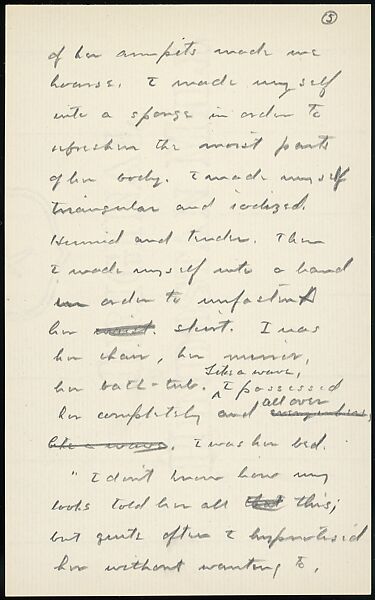 5
of her armpits made me
hoarse. I made myself
into a sponge in order to
refreshen the moist parts
of her body. I made myself
triangular and iodized.
Humid and tender. Then
I made myself into a hand
in order to unfasten
her skirt. I was
her chair, her mirror,
her bath-tub. Like a wave, I possessed
her completely and all over
like a wave. I was her bed.
" I don't know how my
looks told her all that this;
but quite often I hypnotised
her without wanting to.